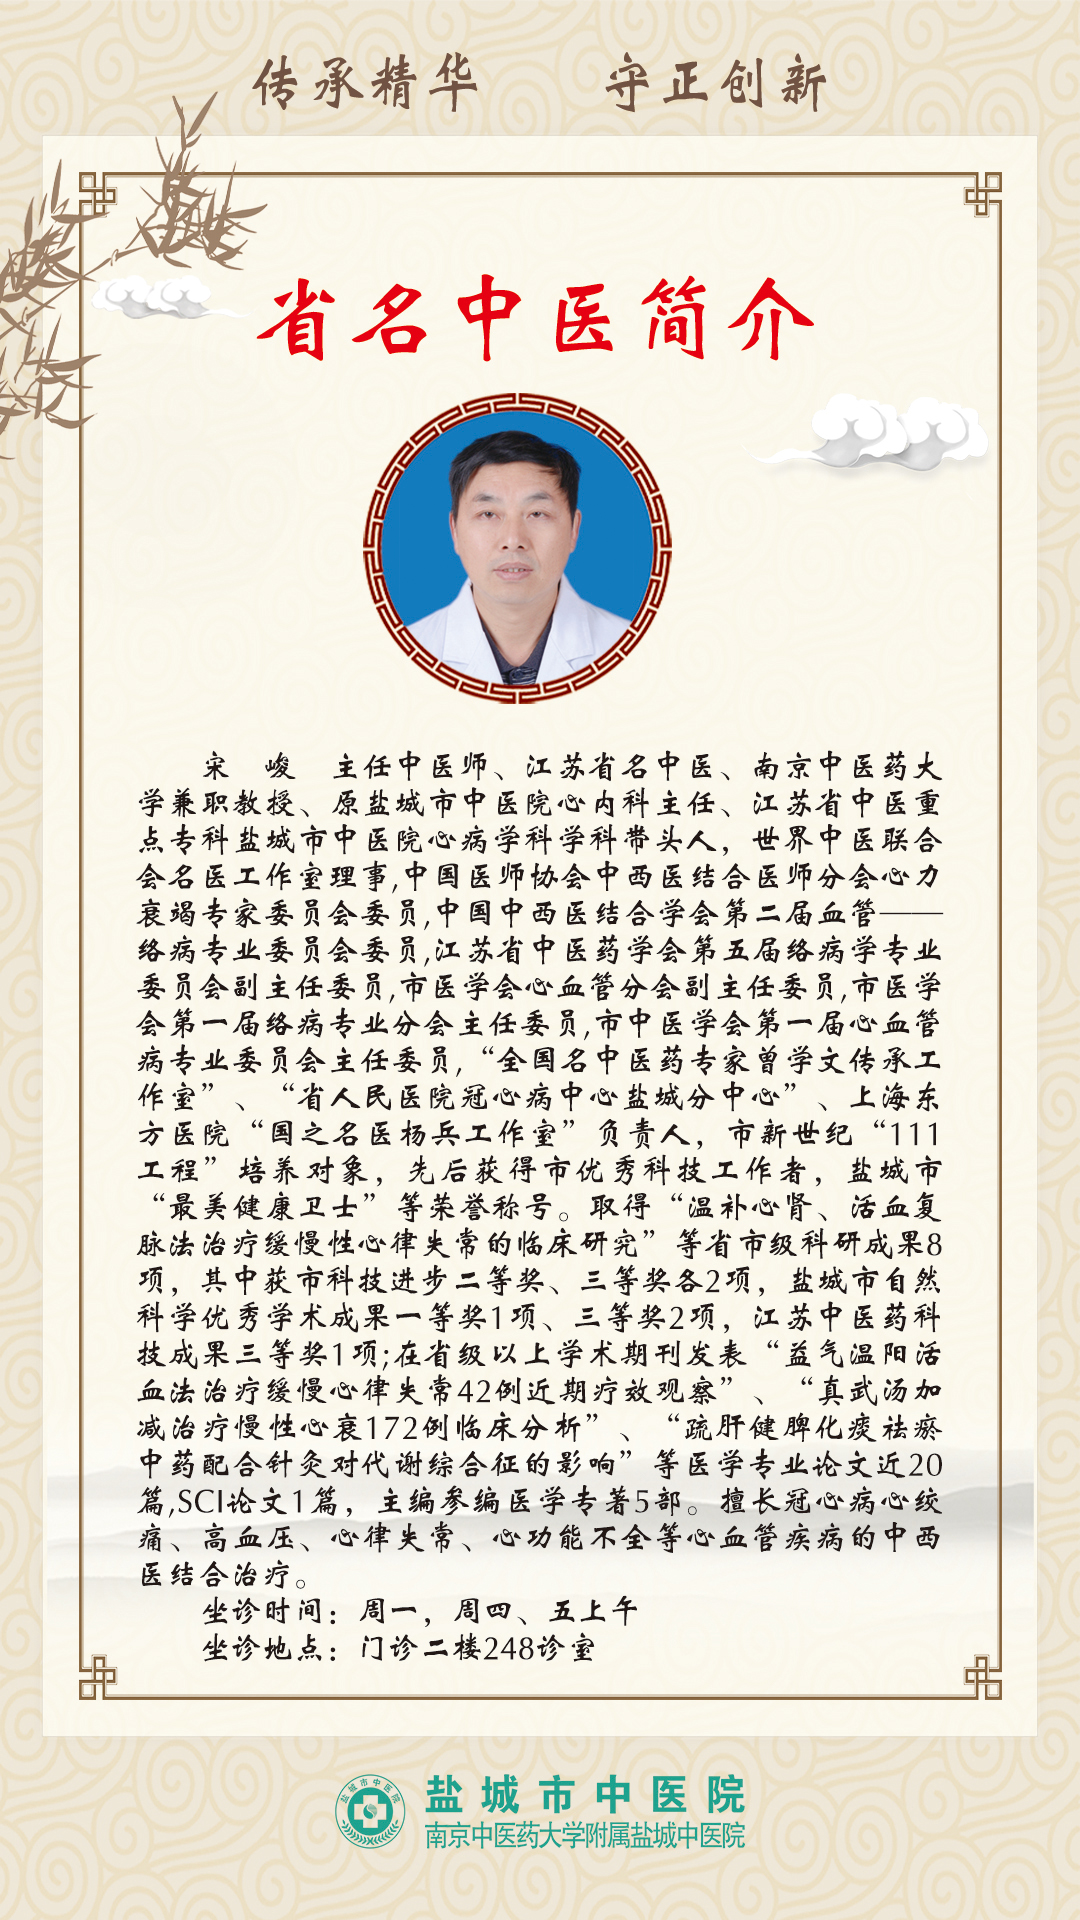 传承精华 守正创新
省名中医简介
宋 峻 主任中医师、江苏省名中医、南京中医药大
学兼职教授、原盐城市中医院心内科主任、江苏省中医重
点专科盐城市中医院心病学科学科带头人，世界中医联合
会名医工作室理事,中国医师协会中西医结合医师分会心力
衰竭专家委员会委员,中国中西医结合学会第二届血管——
络病专业委员会委员,江苏省中医药学会第五届络病学专业
委员会副主任委员,市医学会心血管分会副主任委员,市医学
会第一届络病专业分会主任委员,市中医学会第一届心血管
病专业委员会主任委员,“全国名中医药专家曾学文传承工
作室”、“省人民医院冠心病中心盐城分中心”、上海东
方医院“国之名医杨兵工作室”负责人，市新世纪“111
工程”培养对象，先后获得市优秀科技工作者，盐城市
“最美健康卫士”等荣誉称号。取得“温补心肾、活血复
脉法治疗缓慢性心律失常的临床研究”等省市级科研成果8
项，其中获市科技进步二等奖、三等奖各2项，盐城市自然
科学优秀学术成果一等奖1项、三等奖2项，江苏中医药科
技成果三等奖1项;在省级以上学术期刊发表“益气温阳活
血法治疗缓慢心律失常42例近期疗效观察”、“真武汤加
减治疗慢性心衰172例临床分析”、“疏肝健脾化痰祛瘀
中药配合针灸对代谢综合征的影响”等医学专业论文近20
篇,SCI论文1篇，主编参编医学专著5部。擅长冠心病心绞
痛、高血压、心律失常、心功能不全等心血管疾病的中西
医结合治疗。
坐诊时间：周一，周四、五上午
坐诊地点：门诊二楼248诊室
盐城市中医院
盐城市中医院
南京中医药大学附属盐城中医院